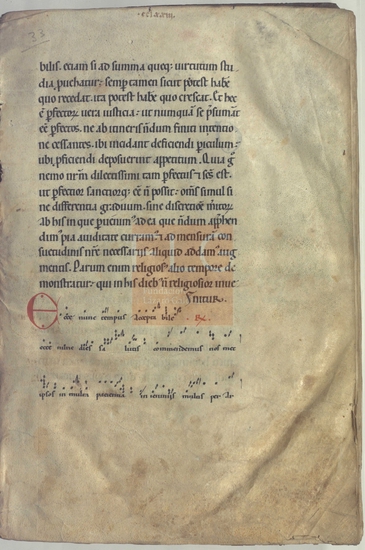 .cclxxiii.
bilis. etiam si ad summa queq; uirtutum stu
dia puehatur; semp tamen sicut potest habe
quo recedat. ita potest habe quo crescat. Et hec
ē pfectorum uera iusticia. ut nunquā se psumāt
eē pfectos. ne ab itineris nōdum finiti intentio
ne cessantes. ibi incidant deficiendi periculum.
ubi pficiendi deposuerint appetitum. Quia gͦ
nemo nr̄m dilectissimi tam perfectus ⁊ sc̄s est.
ut pfectior sanctiorq; eē n̄ possit. om̄s simul si
ne differentia graduum. sine discretione
Ab his in que ad ea que nōdum apphen
dim pia auiditate ⁊ ad mensurā con
suetudinis nr̄e necessariis aliquid addam aug
mentis. Parum enim religiosus alio tempore de
monstratur. qui in his dieb; n̄ religiosior inue
nitur.
Ecce nunc tempus acceptabile R.
ecce nunc dies salutis commendemus nos met
ipsos in multa patientia in ieiuniis multis per ar